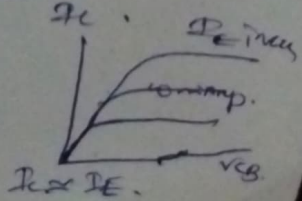 Ic
IE incr
VCB.
Ic ≈ IE.